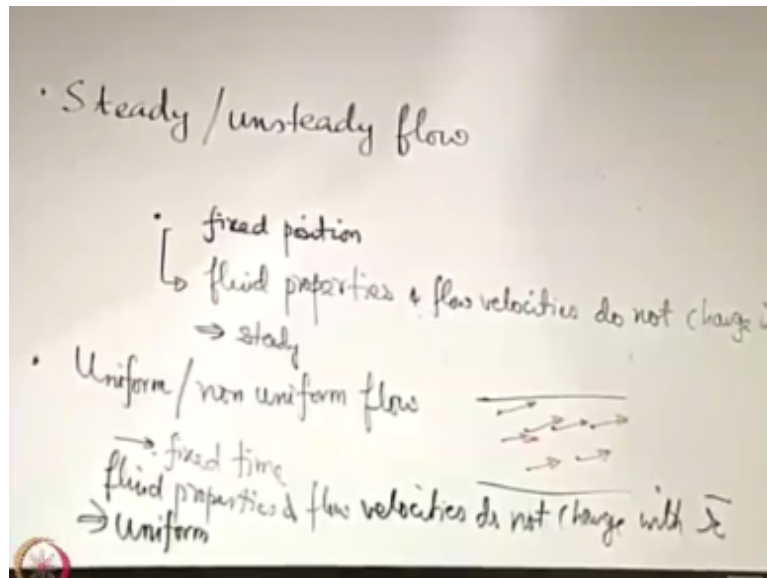 • Steady / unsteady flow
• fixed position
↳ fluid properties & flow velocities do not change
⇒ steady
• Uniform / non uniform flow
→ fixed time
fluid properties & flow velocities do not change with
⇒ Uniform